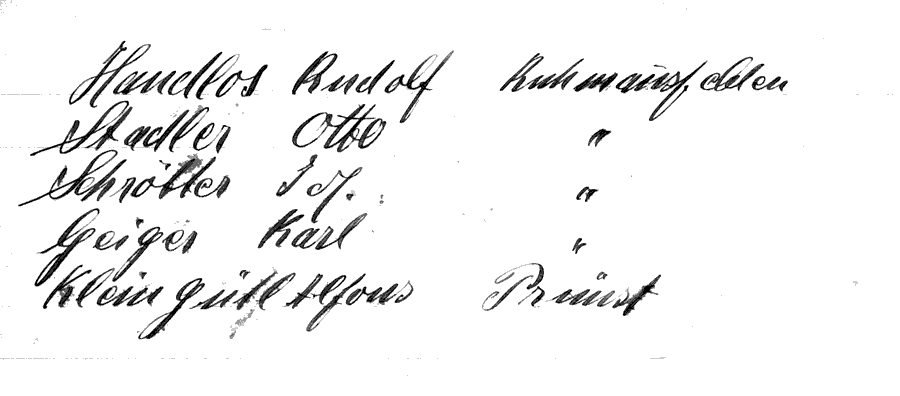 Handlos Rudolf Ruhmannsfelden
Stadler Otto "
Schrötter "
Geiger Karl "
Kleingütl Alfons Prünst